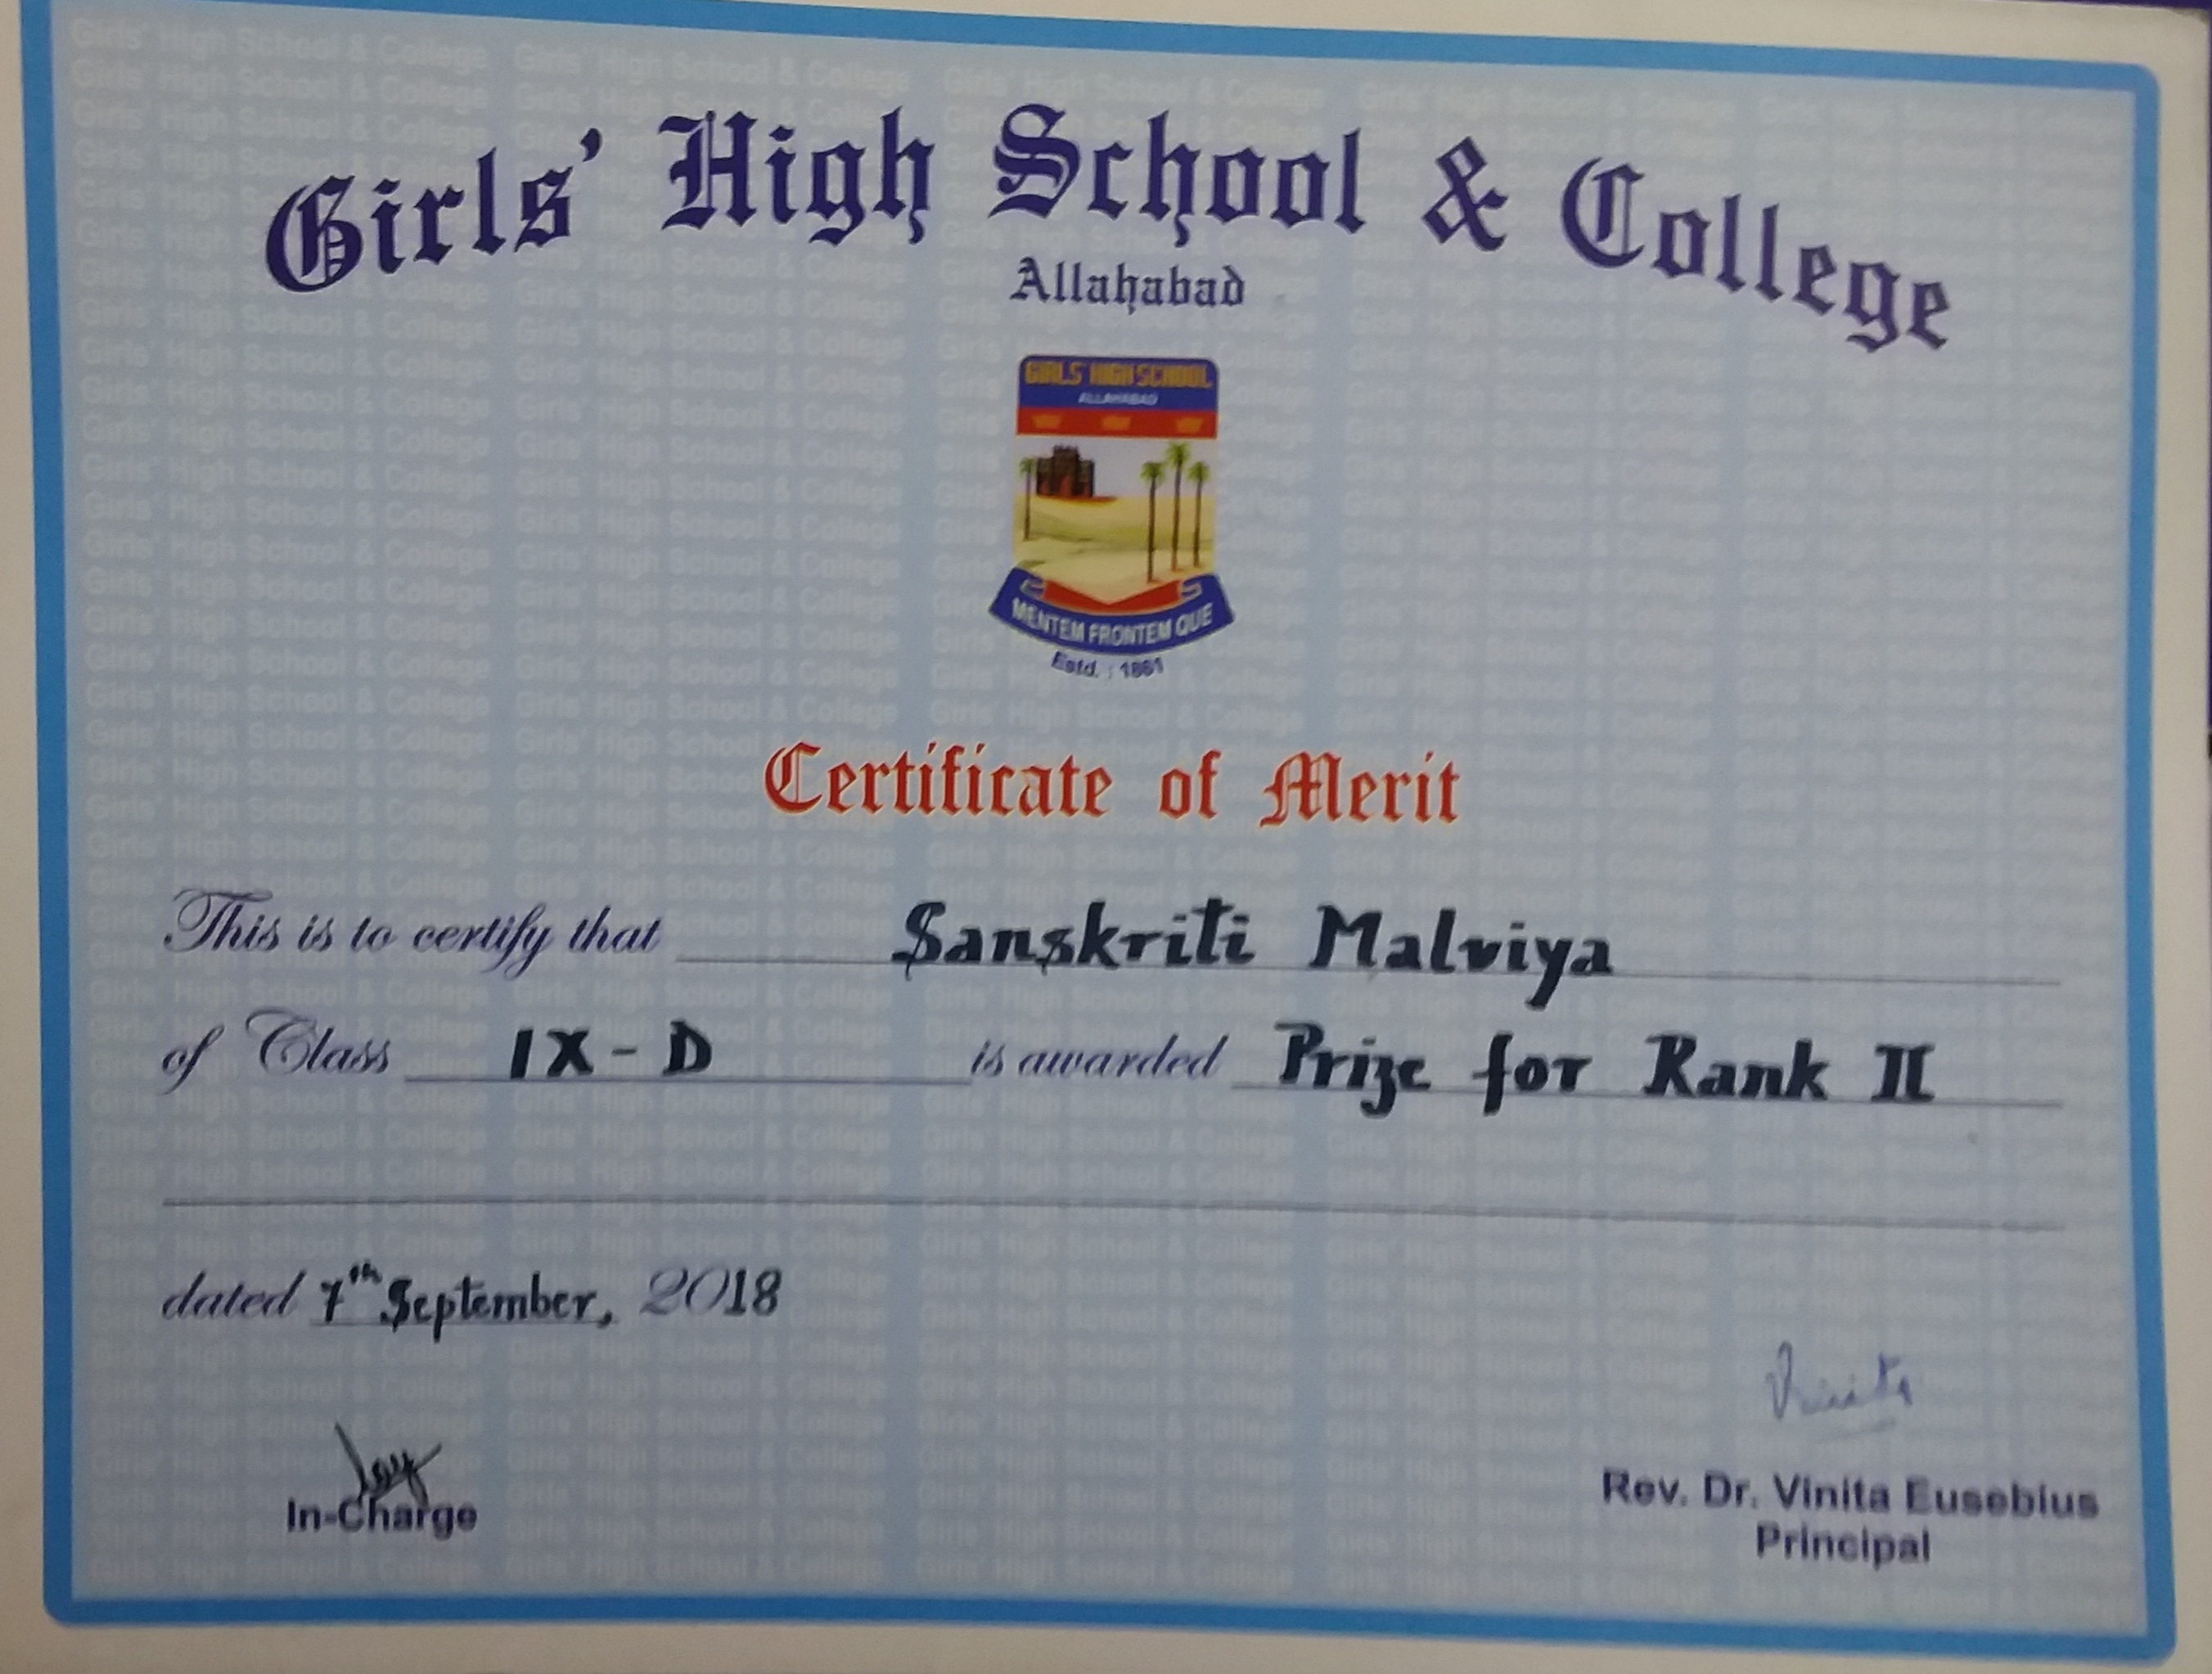 Girls' High School & College
Allahabad
GIRLS' HIGH SCHOOL
ALLAHABAD
MENTEM FRONTEM QUE
Estd. : 1861
Certificate of Merit
This is to certify that Sanskriti Malviya
of Class IX - D is awarded Prize for Rank II
dated 7th September, 2018
Vinita
In-Charge
Rev. Dr. Vinita Eusebius
Principal